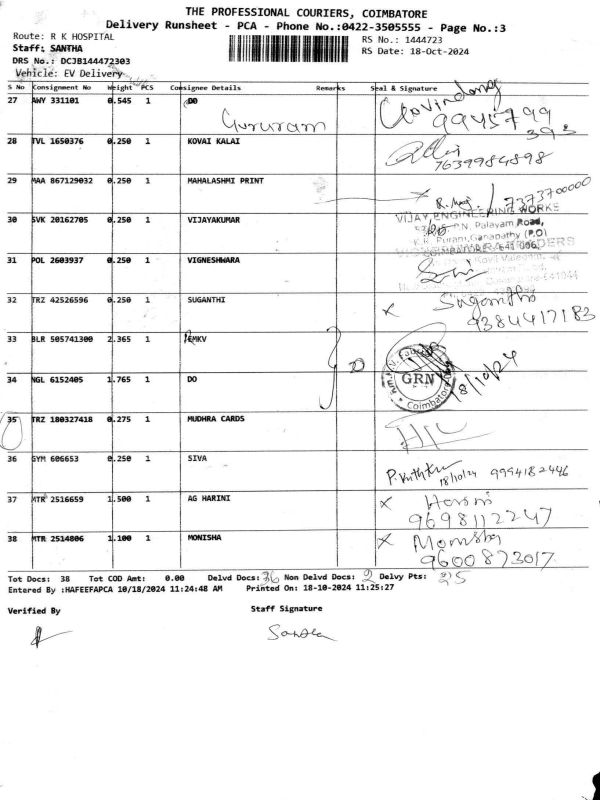 THE PROFESSIONAL COURIERS, COIMBATORE
Delivery Runsheet - PCA - Phone No.:0422-3505555 - Page No.:3
Route: R K HOSPITAL
RS No.: 1444723
Staff: SANTHA
RS Date: 18-Oct-2024
DRS No.: DCJB144472303
Vehicle: EV Delivery
S No Consignment No Weight PCS Consignee Details Remarks Seal & Signature
27 AWY 331101 0.545 1 DO Govindaraj
Gururam 99457 99
393
28 TVL 1650376 0.250 1 KOVAI KALAI
7639984898
29 MAA 867129032 0.250 1 MAHALASHMI PRINT
7373700000
30 SVK 20162705 0.250 1 VIJAYAKUMAR
VIJAY ENGINEERING WORKS
P.N. Palayam Road,
K.R. Puram, Ganapathy (P.O)
COIMBATORE - 641 006.
31 POL 2603937 0.250 1 VIGNESHWARA
32 TRZ 42526596 0.250 1 SUGANTHI x Sugantho
9384417183
33 BLR 505741300 2.365 1 EMKV
34 NGL 6152405 1.765 1 DO
GRN
Coimbatore
18/10/24
35 TRZ 180327418 0.275 1 MUDHRA CARDS
36 GYM 606653 0.250 1 SIVA
18/10/24 9994182446
37 MTR 2516659 1.500 1 AG HARINI x Harini
9698112247
38 MTR 2514806 1.100 1 MONISHA x Monisha
9600873017
Tot Docs: 38 Tot COD Amt: 0.00 Delvd Docs: 36 Non Delvd Docs: 2 Delvy Pts: 25
Entered By :HAFEEFAPCA 10/18/2024 11:24:48 AM Printed On: 18-10-2024 11:25:27
Verified By Staff Signature
Santha